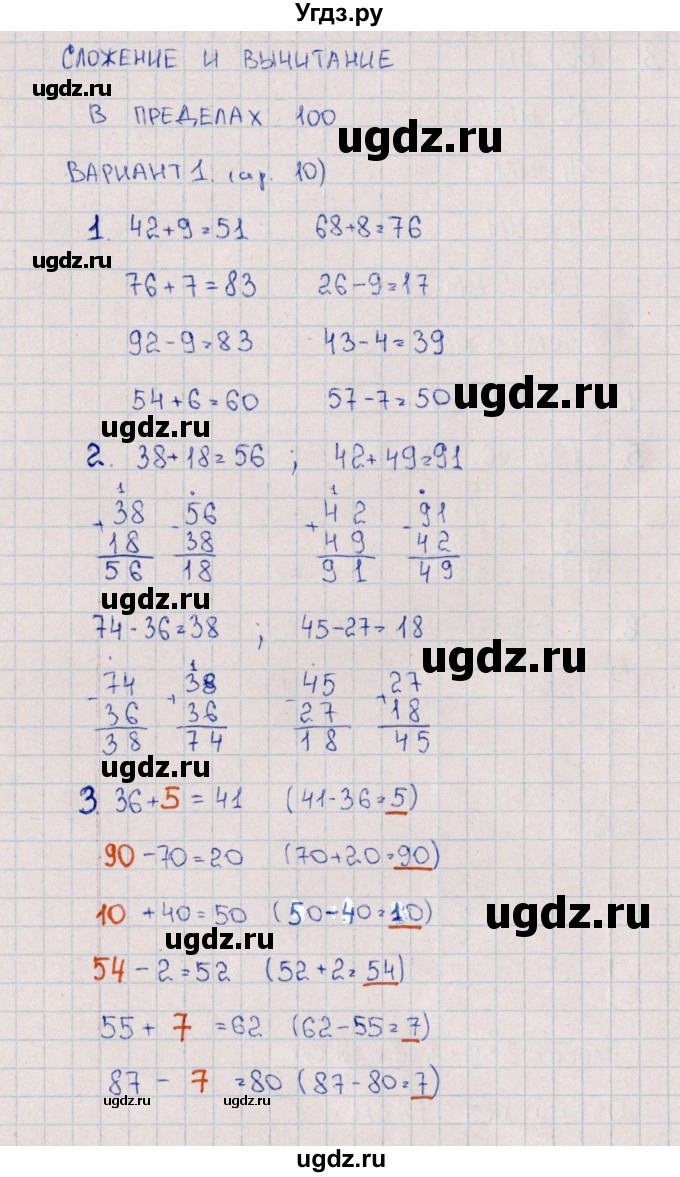 Угдз.ру
СЛОЖЕНИЕ И ВЫЧИТАНИЕ
ugdz.ru
В ПРЕДЕЛАХ 100
ugdz.ru
ВАРИАНТ 1. (стр. 10)
1. 42+9=51 68+8=76
ugdz.ru
76+7=83 26-9=17
92-9=83 43-4=39
54+6=60 57-7=50
ugdz.ru
ugdz.ru
2. 38+18=56 ; 42+49=91
1 . 1 .
+38 -56 +42 -91
18 38 49 42
56 18 91 49
ugdz.ru
74-36=38 ; 45-27=18
ugdz.ru
. 1 . 1
-74 +38 -45 +27
36 36 27 18
38 74 18 45
ugdz.ru
3. 36+5=41 (41-36=5)
90-70=20 (70+20=90)
10+40=50 (50-40=10)
ugdz.ru
ugdz.ru
54-2=52 (52+2=54)
55+7=62 (62-55=7)
87-7=80 (87-80=7)
ugdz.ru
ugdz.ru
ugdz.ru